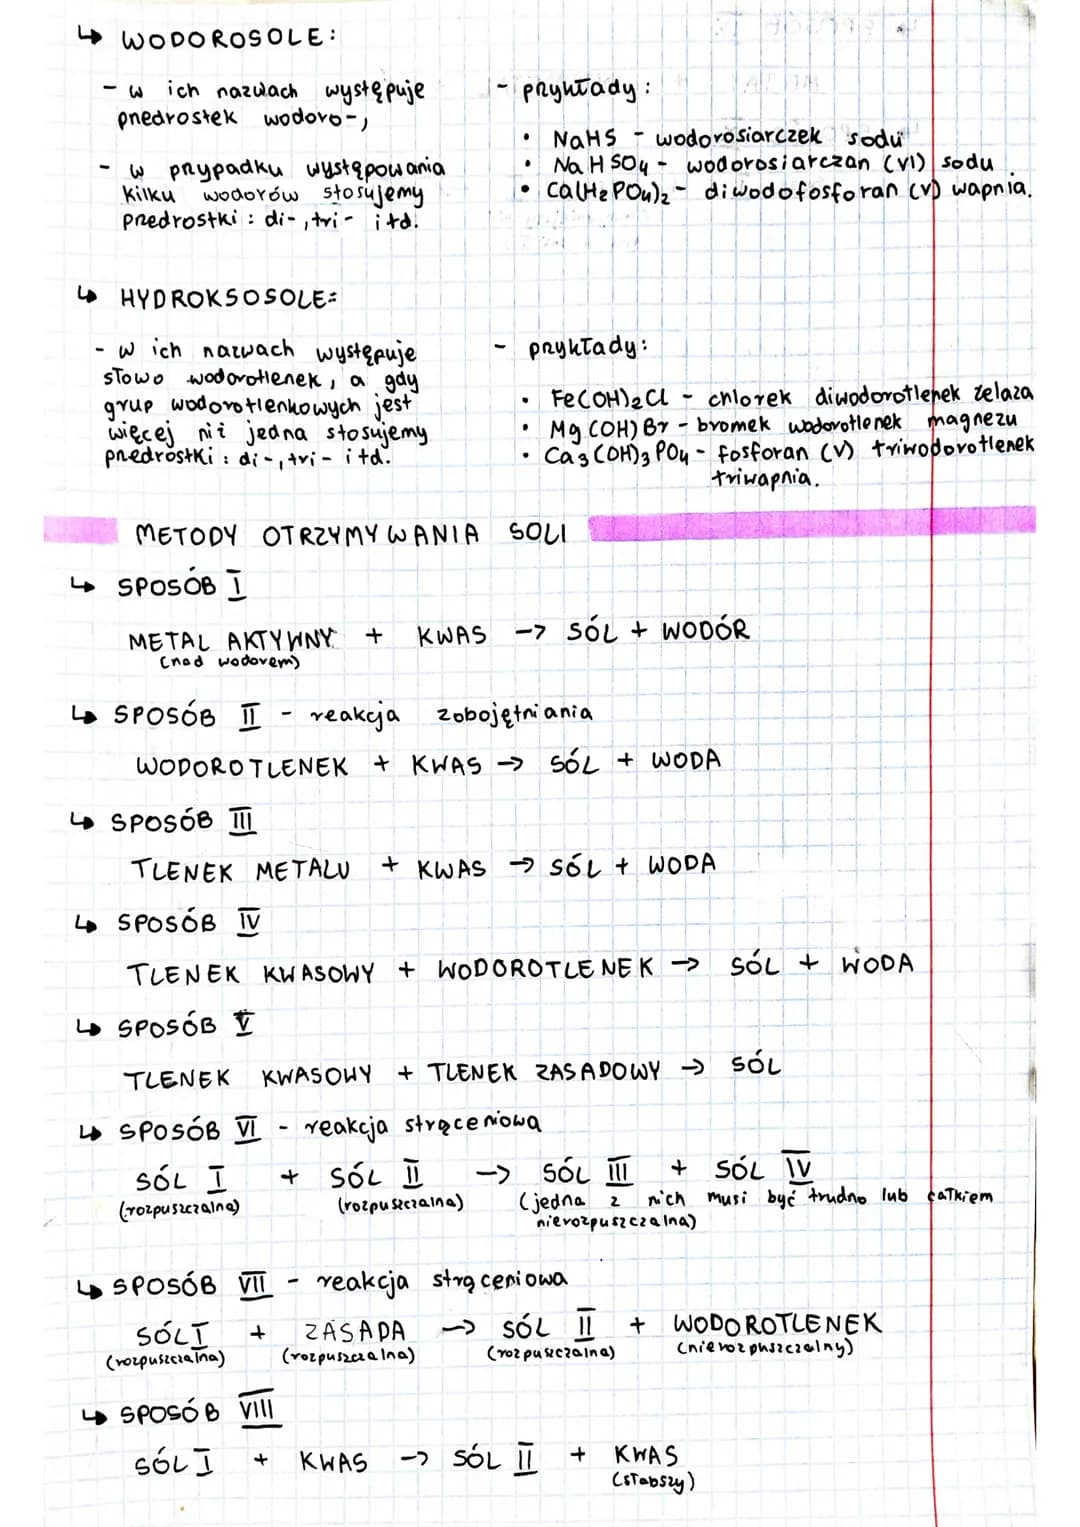 ↳ WODOROSOLE:
- w ich nazwach występuje
przedrostek wodoro-,
- w przypadku występowania
kilku wodorów stosujemy
przedrostki: di-, tri- itd.
- przykłady:
• NaHS - wodorosiarczek sodu
• NaHSO4 - wodorosiarczan (VI) sodu.
• Ca(H2PO4)2 - diwodofosforan (V) wapnia.
↳ HYDROKSOSOLE:
- w ich nazwach występuje
słowo wodorotlenek, a gdy
grup wodorotlenkowych jest
więcej niż jedna stosujemy
przedrostki: di-, tri- itd.
- przykłady:
• Fe(OH)2Cl - chlorek diwodorotlenek żelaza
• Mg(OH)Br - bromek wodorotlenek magnezu
• Ca3(OH)3PO4 - fosforan (V) triwodorotlenek
triwapnia.
METODY OTRZYMYWANIA SOLI
↳ SPOSÓB I
METAL AKTYWNY + KWAS → SÓL + WODÓR
(nad wodorem)
↳ SPOSÓB II - reakcja zobojętniania
WODOROTLENEK + KWAS → SÓL + WODA
↳ SPOSÓB III
TLENEK METALU + KWAS → SÓL + WODA
↳ SPOSÓB IV
TLENEK KWASOWY + WODOROTLENEK → SÓL + WODA
↳ SPOSÓB V
TLENEK KWASOWY + TLENEK ZASADOWY → SÓL
↳ SPOSÓB VI - reakcja strąceniowa
SÓL I + SÓL II → SÓL III + SÓL IV
(rozpuszczalna) (rozpuszczalna) (jedna z nich musi być trudno lub całkiem
nierozpuszczalna)
↳ SPOSÓB VII - reakcja strąceniowa
SÓL I + ZASADA → SÓL II + WODOROTLENEK
(rozpuszczalna) (rozpuszczalna) (rozpuszczalna) (nierozpuszczalny)
↳ SPOSÓB VIII
SÓL I + KWAS → SÓL II + KWAS
(słabszy)